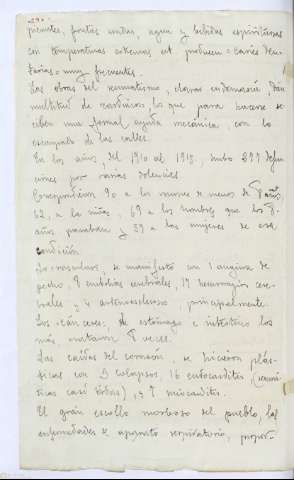 picantes, frutas verdes, agua y bebidas espirituosas
con temperaturas extremas, et producen = caries den-
tarias = muy frecuentes.
Las obras del reumatismo, clavos endemación, dan
multitud de cardíacos, lo que para hacerse re-
ciben una formal ayuda mecánica, con lo
escarpado de las calles.
En los años, del 1910 al 1915, hubo 277 defun-
ciones por varias dolencias.
Correspondieron 90 a los varones de menos de 7 años,
62, a las niñas, 69 a los hombres que los 7
años pasaban y 53 a las mujeres de esa
condición.
Lo vascular, se manifestó con 1 angina de
pecho, 9 embolias cerebrales, 17 hemorragias cere-
brales y 4 arterioesclerosis, principalmente.
Los cánceres, de estómago e intestino los
más, mataron 8 veces.
Las caídas del corazón, se hicieron plás-
ticas con 3 colapsos, 16 endocarditis (reumá-
ticas casi todas), y 7 miocarditis.
El gran escollo morboso del pueblo, las
enfermedades de aparato respiratorio, propor-